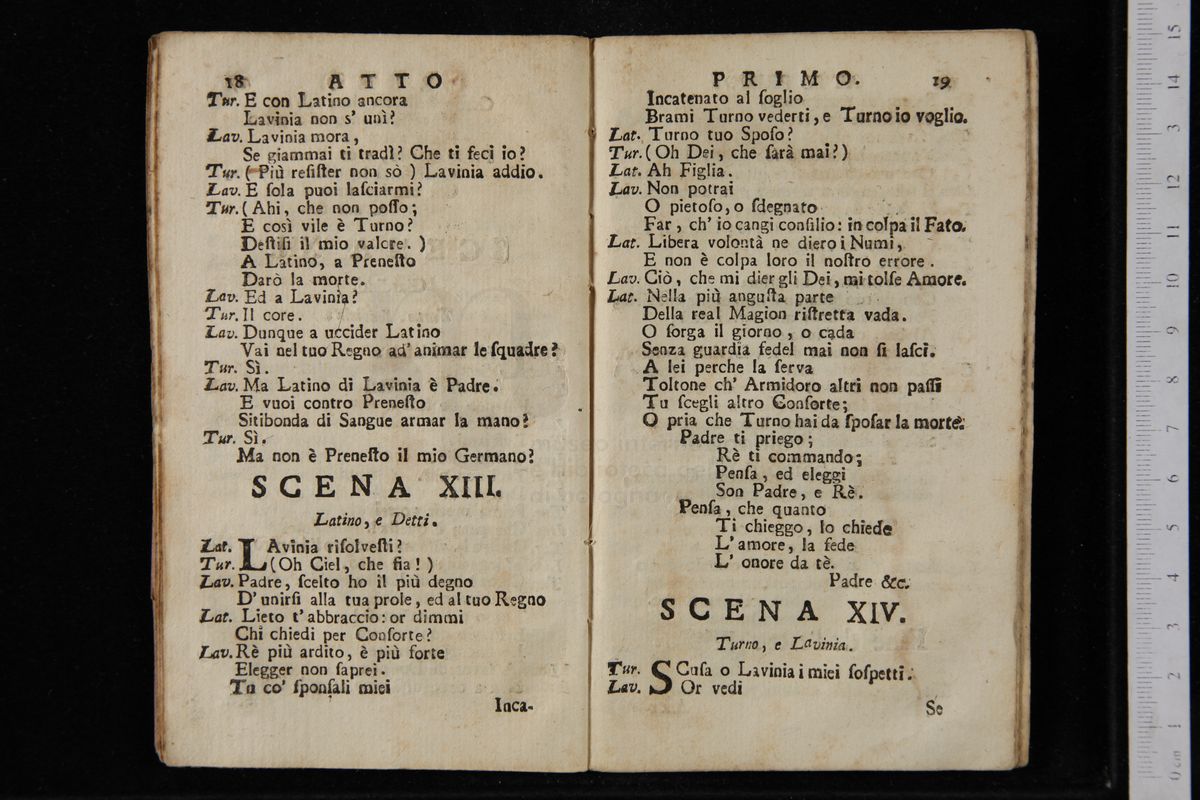 18 ATTO
Tur. E con Latino ancora
Lavinia non s' unì?
Lav. Lavinia mora,
Se giammai ti tradì? Che ti feci io?
Tur. ( Più reſiſter non sò ) Lavinia addio.
Lav. E ſola puoi laſciarmi?
Tur. ( Ahi, che non poſſo;
E così vile è Turno?
Deſtiſi il mio valore. )
A Latino, a Preneſto
Darò la morte.
Lav. Ed a Lavinia?
Tur. Il core.
Lav. Dunque a uccider Latino
Vai nel tuo Regno ad' animar le ſquadre?
Tur. Sì.
Lav. Ma Latino di Lavinia è Padre.
E vuoi contro Preneſto
Sitibonda di Sangue armar la mano?
Tur. Sì.
Ma non è Preneſto il mio Germano?
SCENA XIII.
Latino, e Detti.
Lat. LAvinia riſolveſti?
Tur. (Oh Ciel, che fia! )
Lav. Padre, ſcelto ho il più degno
D' unirſi alla tua prole, ed al tuo Regno
Lat. Lieto t' abbraccio: or dimmi
Chi chiedi per Conſorte?
Lav. Rè più ardito, è più forte
Elegger non ſaprei.
Tu co' ſponſali miei
Inca-
PRIMO. 19
Incatenato al ſoglio
Brami Turno vederti, e Turno io voglio.
Lat. Turno tuo Spoſo?
Tur. ( Oh Dei, che ſarà mai?)
Lat. Ah Figlia.
Lav. Non potrai
O pietoſo, o ſdegnato
Far, ch' io cangi conſilio: in colpa il Fato.
Lat. Libera volontà ne diero i Numi,
E non è colpa loro il noſtro errore.
Lav. Ciò, che mi dier gli Dei, mi tolſe Amore.
Lat. Nella più anguſta parte
Della real Magion riſtretta vada.
O ſorga il giorno, o cada
Senza guardia fedel mai non ſi laſci.
A lei perche la ſerva
Toltone ch' Armidoro altri non paſſi
Tu ſcegli altro Conſorte;
O pria che Turno hai da ſpoſar la morte.
Padre ti priego;
Rè ti commando;
Penſa, ed eleggi
Son Padre, e Rè.
Penſa, che quanto
Ti chieggo, lo chiede
L' amore, la fede
L' onore da tè.
Padre &c.
SCENA XIV.
Turno, e Lavinia.
Tur. SCuſa o Lavinia i miei ſoſpetti.
Lav. Or vedi
Se
0 cm 1 2 3 4 5 6 7 8 9 10 11 12 13 14 15